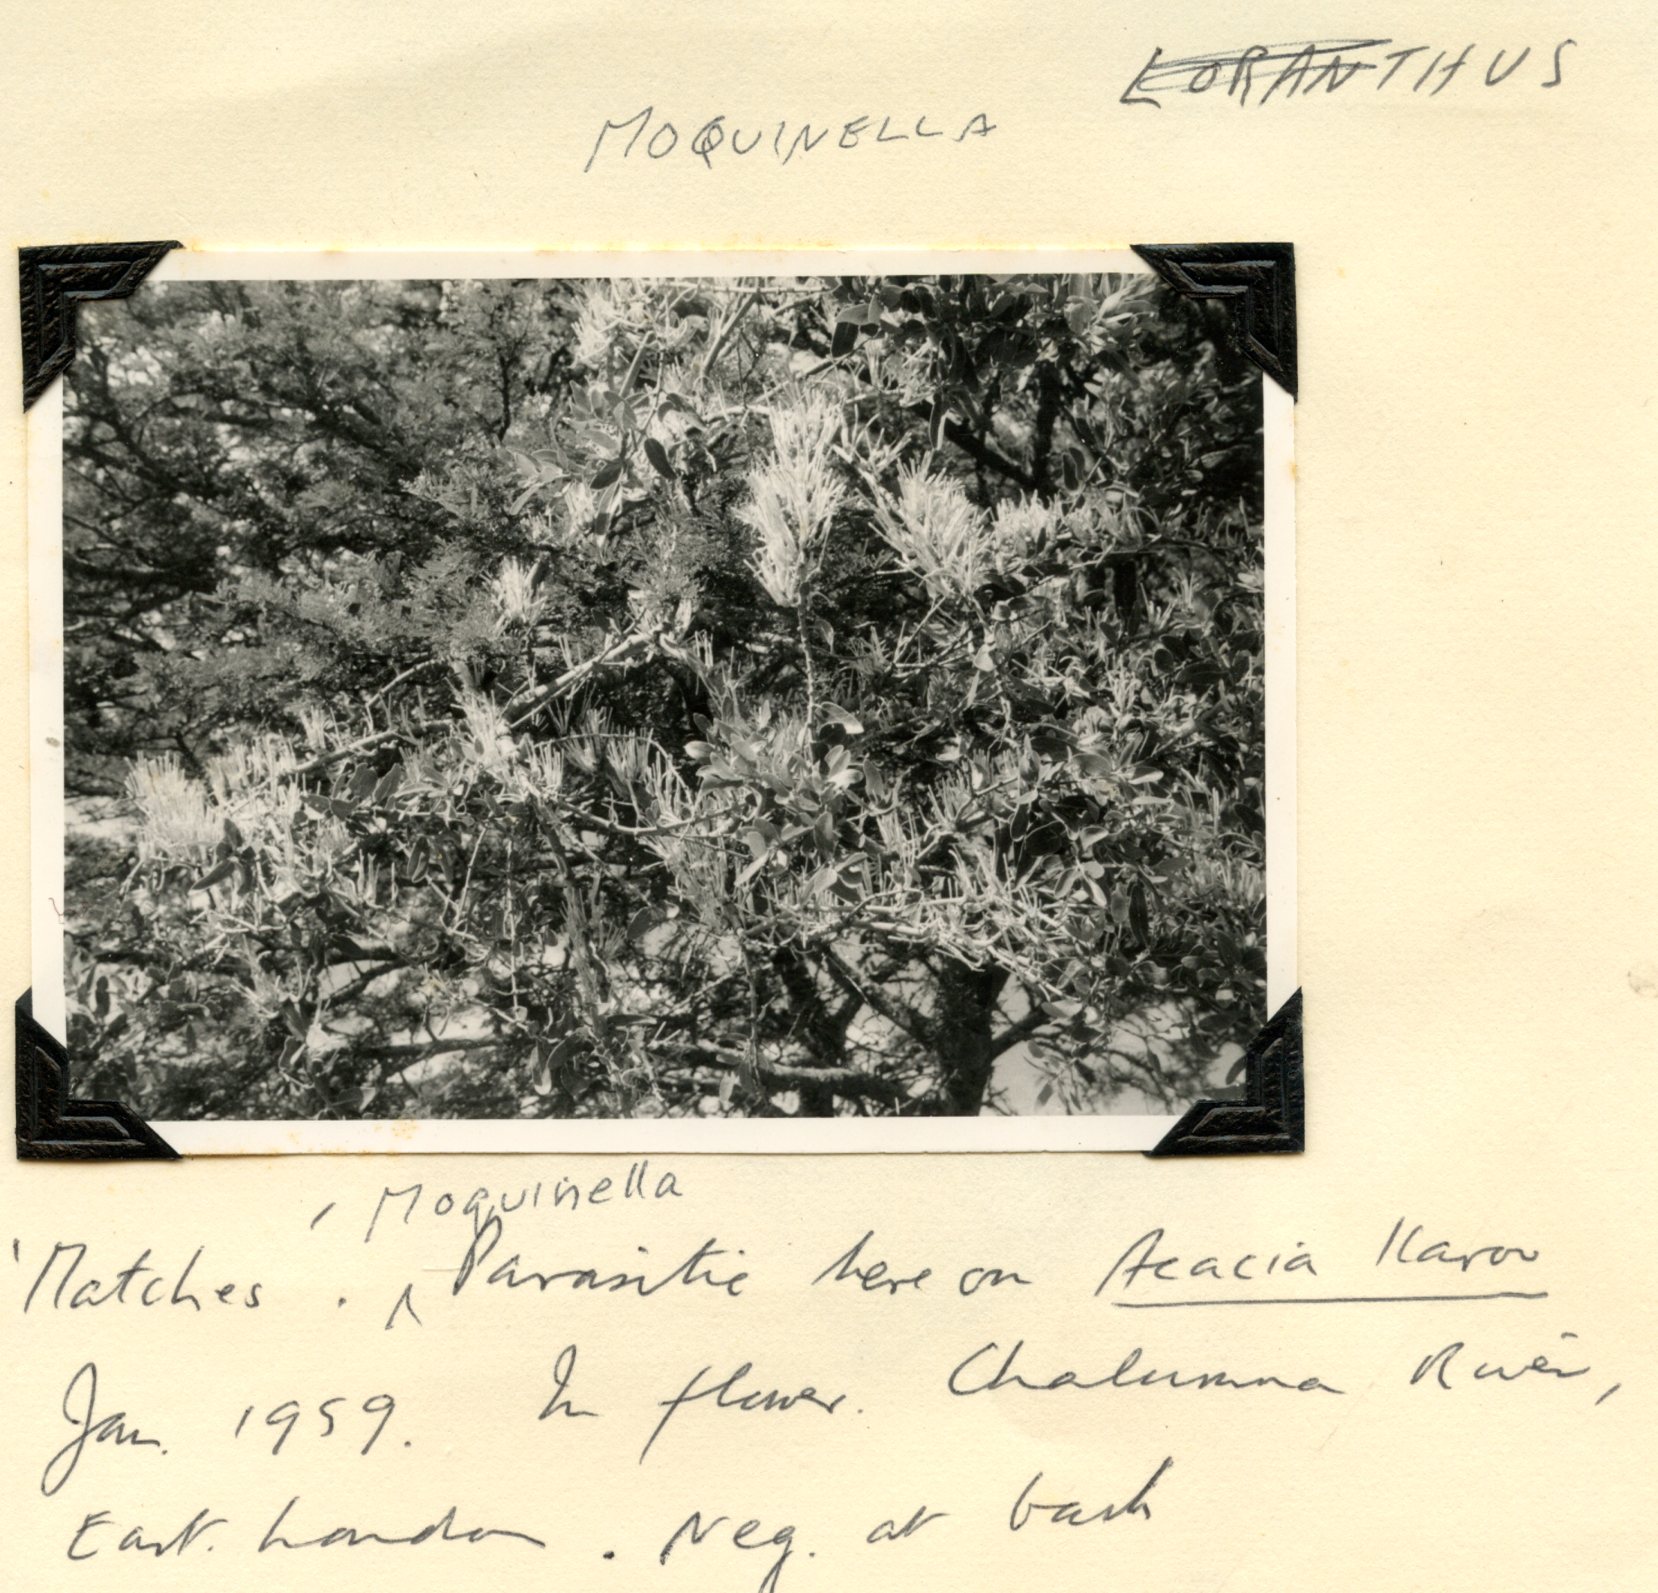 LORANTHUS
MOQUINELLA
Moquinella
'Matches'. ^ Parasitic here on Acacia Karoo
Jan. 1959. In flower. Chalumna River,
East London. Neg. at back